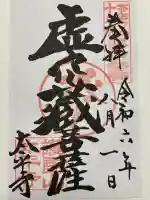 奉拝
令和六年
八月一日
虚空蔵菩薩
太平寺